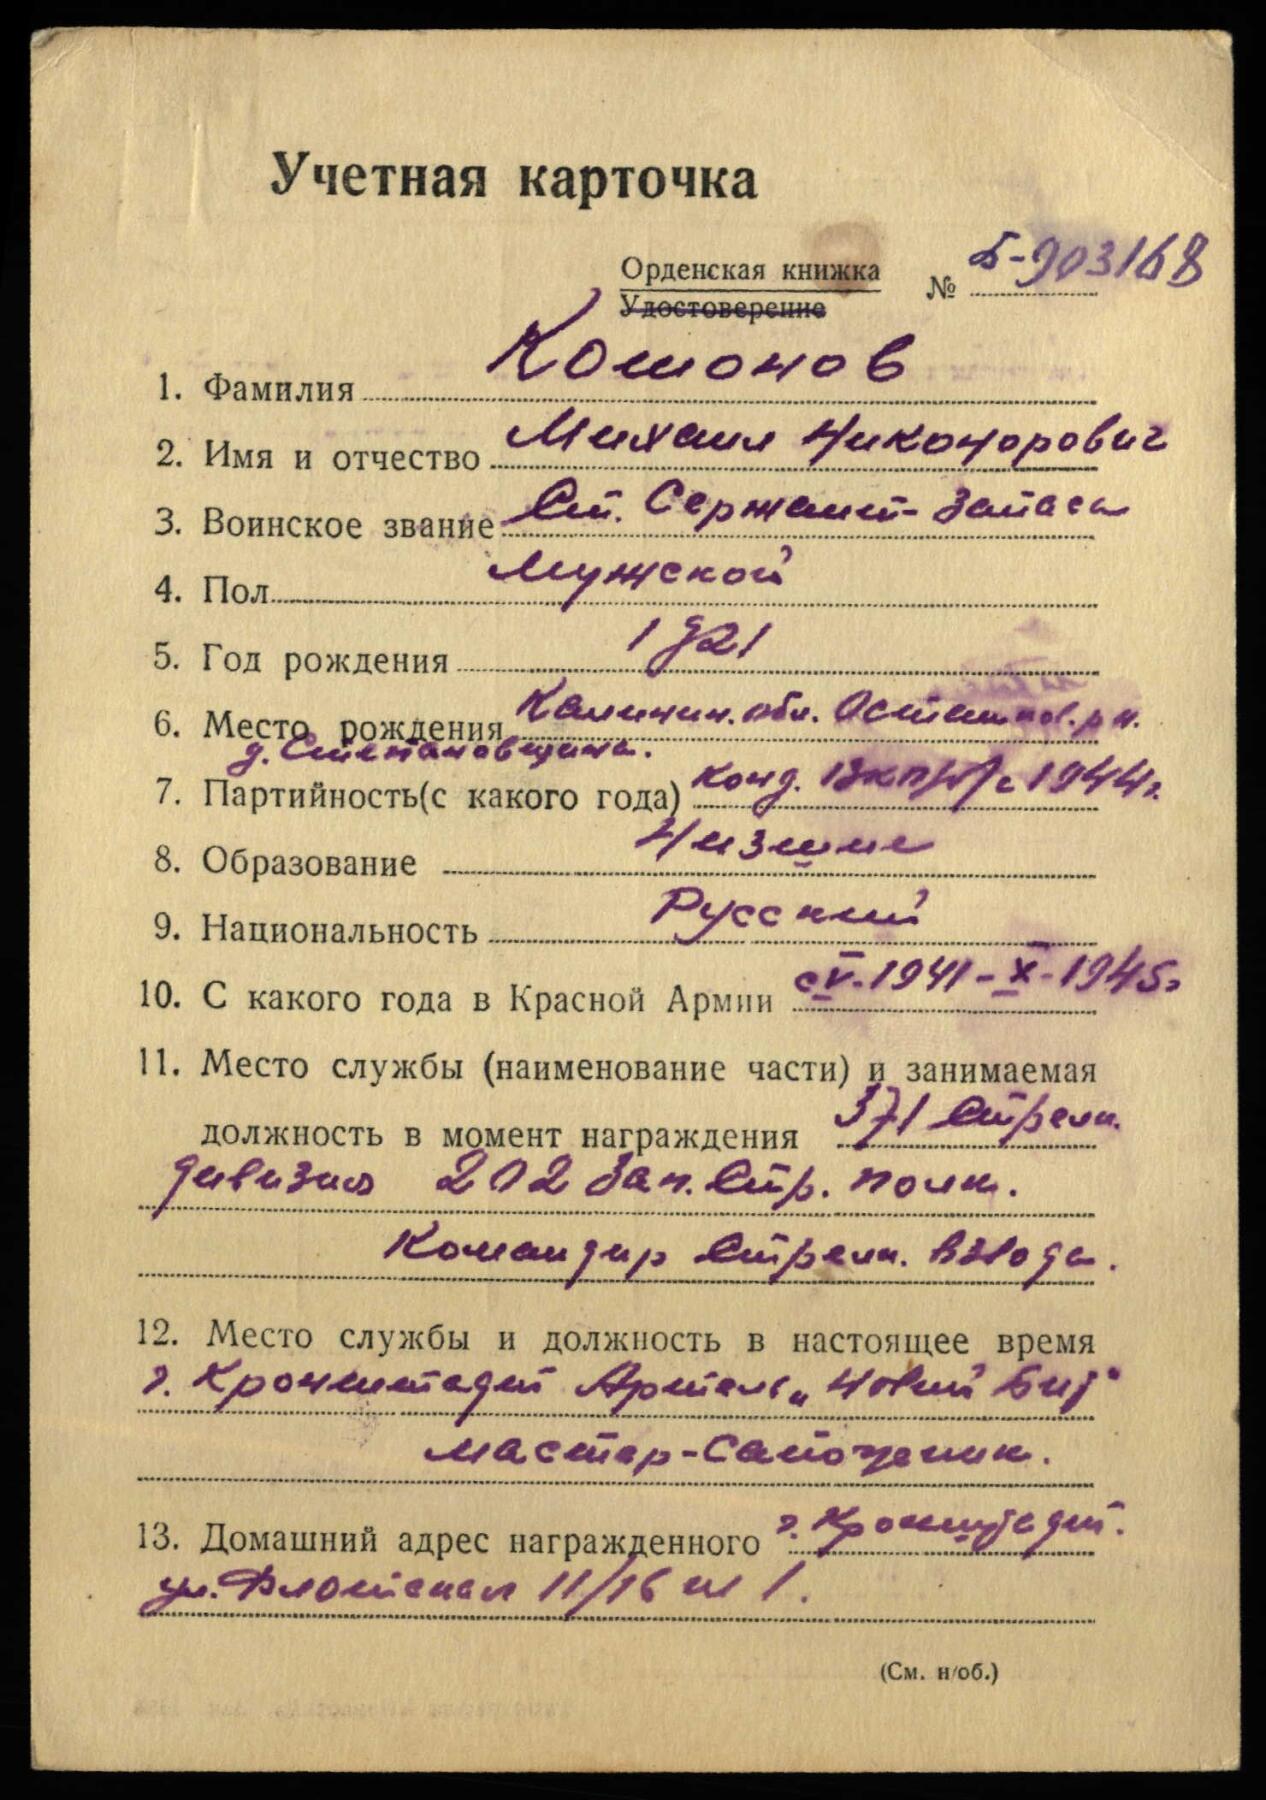 Учетная карточка
Орденская книжка
Удостоверение
№ Б-903168
1. Фамилия Кошонов
2. Имя и отчество Михаил Никонорович
3. Воинское звание Ст. Сержант запаса
4. Пол Мужской
5. Год рождения 1921
6. Место рождения Калинин. обл. Осташков. р-н.
д.
7. Партийность(с какого года) Канд. ВКП(б) с 1944 г.
8. Образование Низшее
9. Национальность Русский
10. С какого года в Красной Армии с V-1941-X-1945 г
11. Место службы (наименование части) и занимаемая
должность в момент награждения 371 Стрелк.
дивизия 202 Зап. Стр. полк.
Командир Стрелк. взвода.
12. Место службы и должность в настоящее время
г. Кронштадт Артель „Новый Быт"
мастер-Сапожник.
13. Домашний адрес награжденного г. Кронштадт.
ул. Флотская 11/16 кв 1.
(См. н/об.)